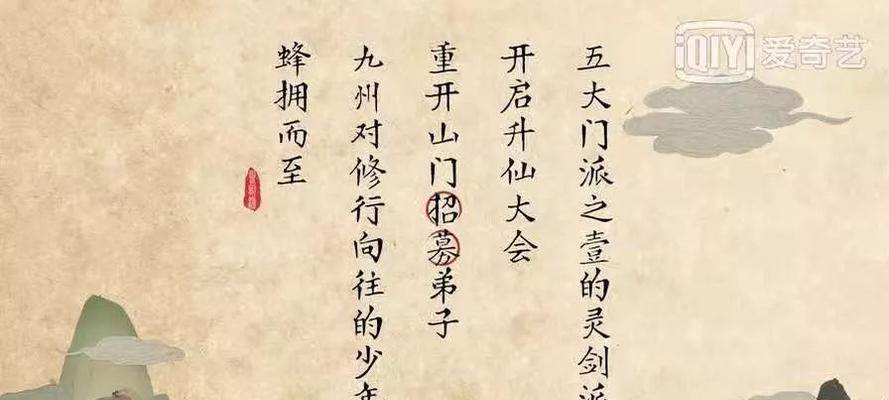 五大门派之壹的灵剑派
开启升仙大会
重开山门招募弟子
九州对修行向往的少年
蜂拥而至
iQIYI 爱奇艺